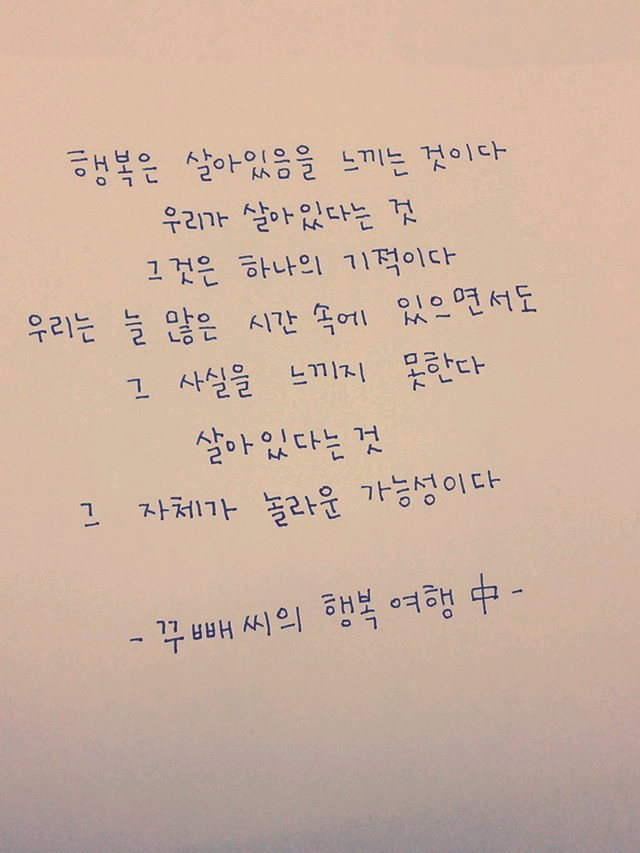 행복은 살아있음을 느끼는 것이다
우리가 살아있다는 것
그것은 하나의 기적이다
우리는 늘 많은 시간 속에 있으면서도
그 사실을 느끼지 못한다
살아있다는 것
그 자체가 놀라운 가능성이다
- 꾸빼씨의 행복 여행 中 -